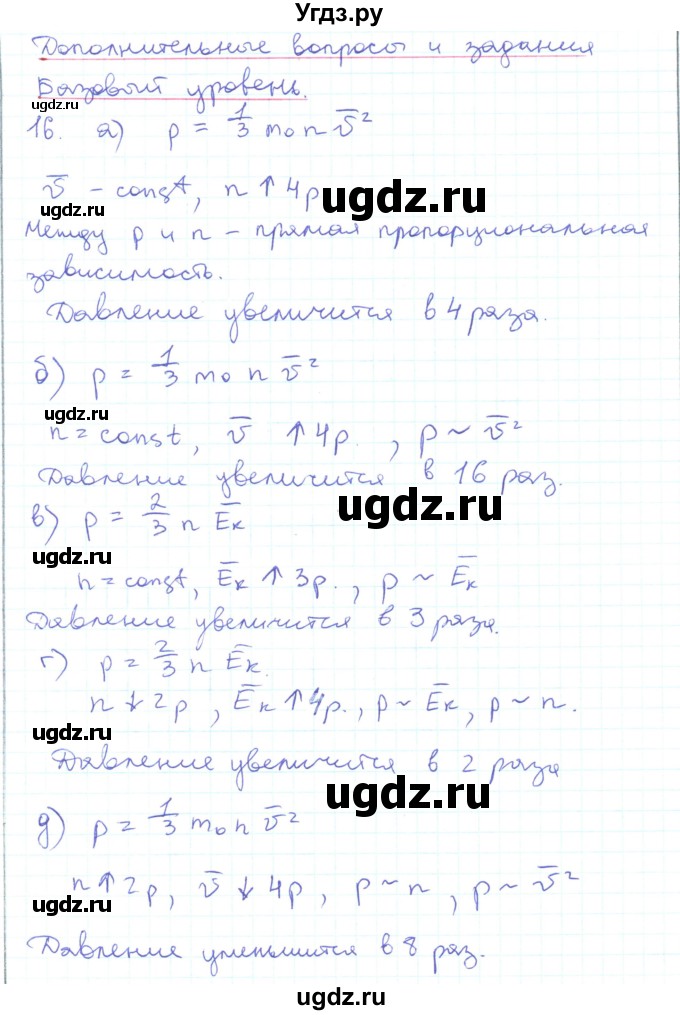 Угдз.ру
Дополнительные вопросы и задания
Базовый уровень.
ugdz.ru
16. а) p = 1/3 m₀ n v̄²
v̄ - const, n ↑ 4р
ugdz.ru
ugdz.ru
Между p и n - прямая пропорциональная
зависимость.
Давление увеличится в 4 раза.
б) p = 1/3 m₀ n v̄²
ugdz.ru
n = const, v̄ ↑ 4р. , p ~ v̄²
Давление увеличится в 16 раз.
ugdz.ru
в) p = 2/3 n Ēк
ugdz.ru
n = const, Ēк ↑ 3р., p ~ Ēк
Давление увеличится в 3 раза.
г) p = 2/3 n Ēк.
n ↓ 2р, Ēк ↑ 4р., p ~ Ēк, p ~ n.
ugdz.ru
Давление увеличится в 2 раза
ugdz.ru
д) p = 1/3 m₀ n v̄²
n ↑ 2р, v̄ ↓ 4р, p ~ n, p ~ v̄²
ugdz.ru
Давление уменьшится в 8 раз.
ugdz.ru